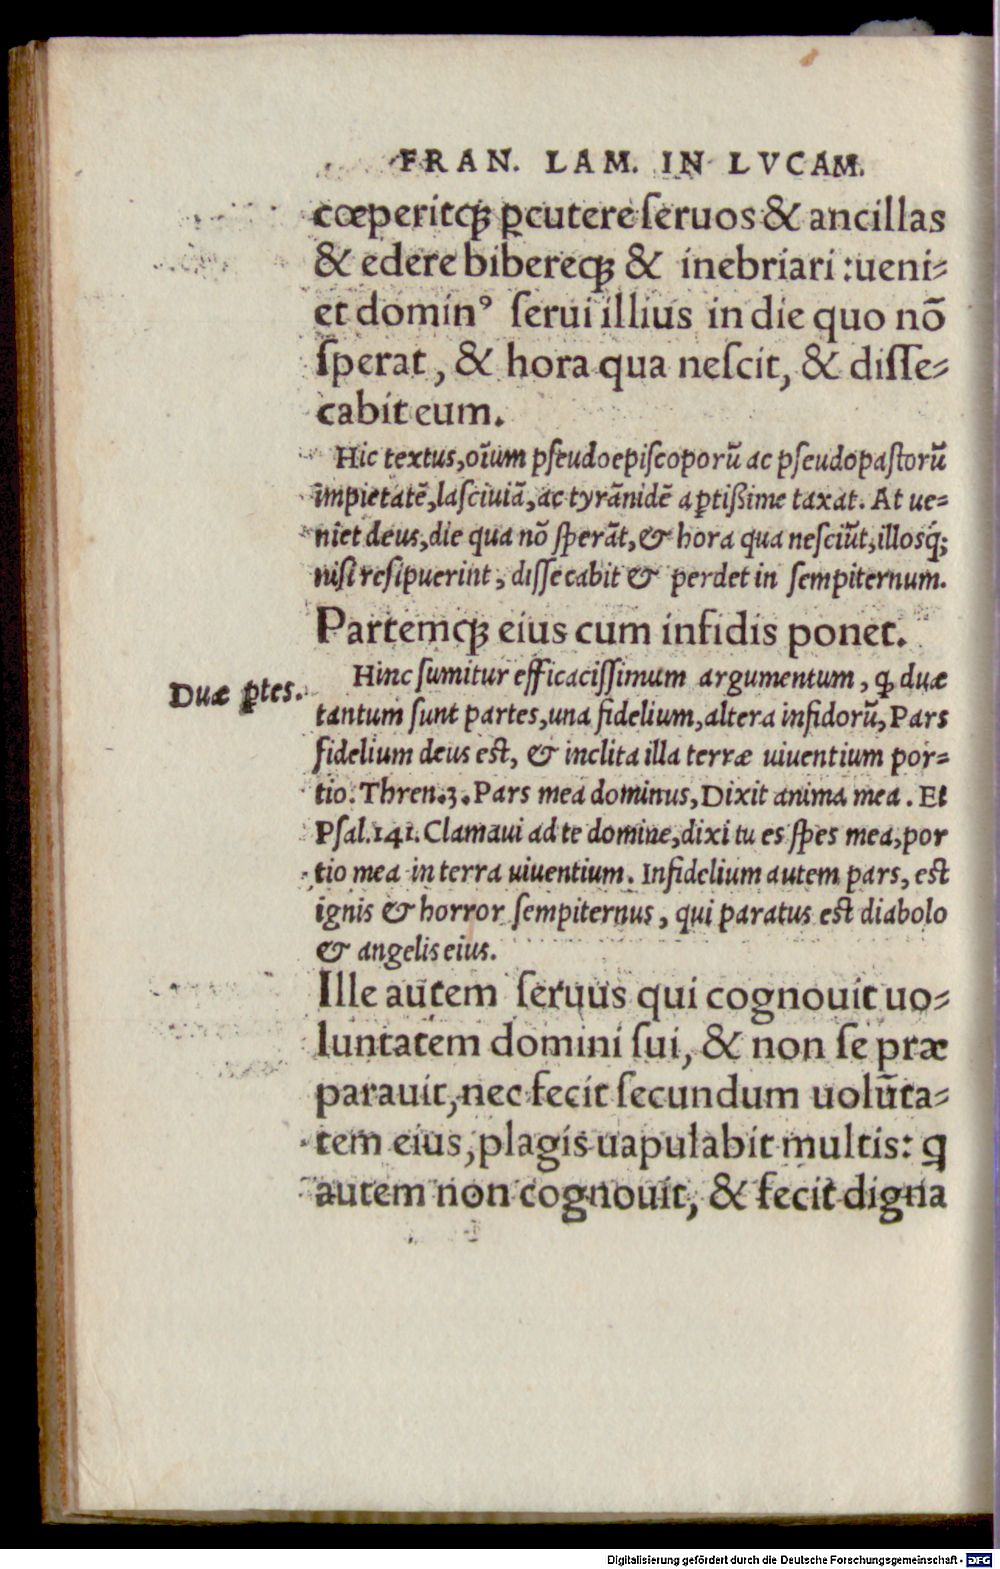 FRAN. LAM. IN LVCAM.
cœperitqꝫ ꝑcutere ſeruos & ancillas
& edere bibereqꝫ & inebriari : ueni-
et dominꝰ ſerui illius in die quo nõ
ſperat, & hora qua neſcit, & diſſe-
cabit eum.
Hic textus, oĩum pſeudoepiſcoporũ ac pſeudopaſtorũ
impietatẽ, laſciuiã, ac tyrãnidẽ aptißime taxat. At ue-
niet deus, die qua nõ ſperãt, & hora qua neſciũt, illosq́;
niſi reſipuerint, diſſecabit & perdet in ſempiternum.
Partemqꝫ eius cum infidis ponet.
Duæ ꝑtes.
Hinc ſumitur efficaciſſimum argumentum, ꝙ duæ
tantum ſunt partes, una fidelium, altera infidorũ, Pars
fidelium deus eſt, & inclita illa terræ uiuentium por-
tio. Thren.3. Pars mea dominus, Dixit anima mea. Et
Pſal.141. Clamaui ad te domine, dixi tu es ſpes mea, por
tio mea in terra uiuentium. Infidelium autem pars, eſt
ignis & horror ſempiternus, qui paratus eſt diabolo
& angelis eius.
Ille autem ſeruus qui cognouit uo-
luntatem domini ſui, & non ſe præ
parauit, nec fecit ſecundum uolũta-
tem eius, plagis uapulabit multis: q
autem non cognouit, & fecit digna
Digitalisierung gefördert durch die Deutsche Forschungsgemeinschaft - DFG